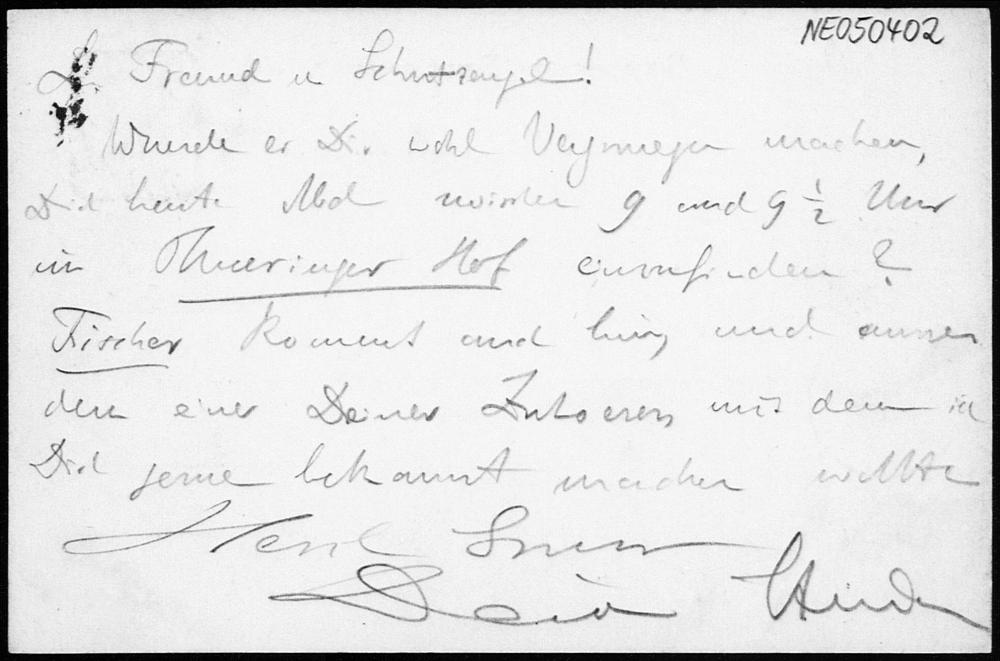 NE050402
Freund u Schutzengel!
Wuerde es Dir wohl Vergnuegen machen,
Dich heute Abd zwischen 9 und 9 ½ Uhr
im Thueringer Hof einzufinden?
Fischer kommt auch hin, und ausser
dem einer Deiner Zuhoerer, mit dem ich
Dich gerne bekannt machen wollte
Herzl Gruss
Dein